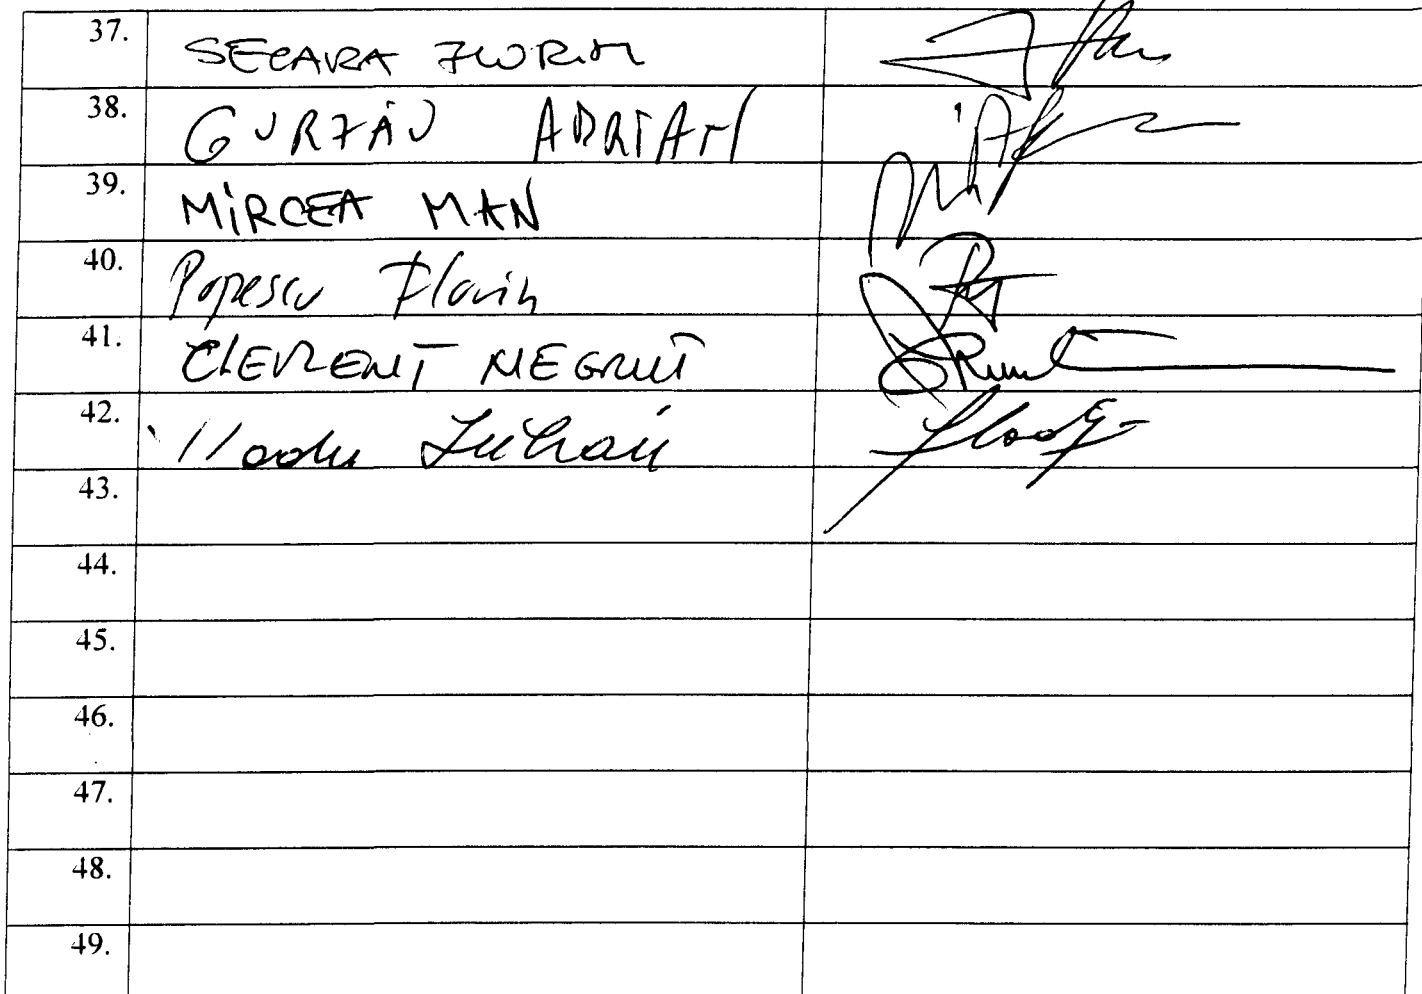 37. SECARA FLORIN
38. GURZĂU ADRIAN
39. MIRCEA MAN
40. Popescu Florin
41. CLEMENT NEGRUȚ
42.
43.
44.
45.
46.
47.
48.
49.